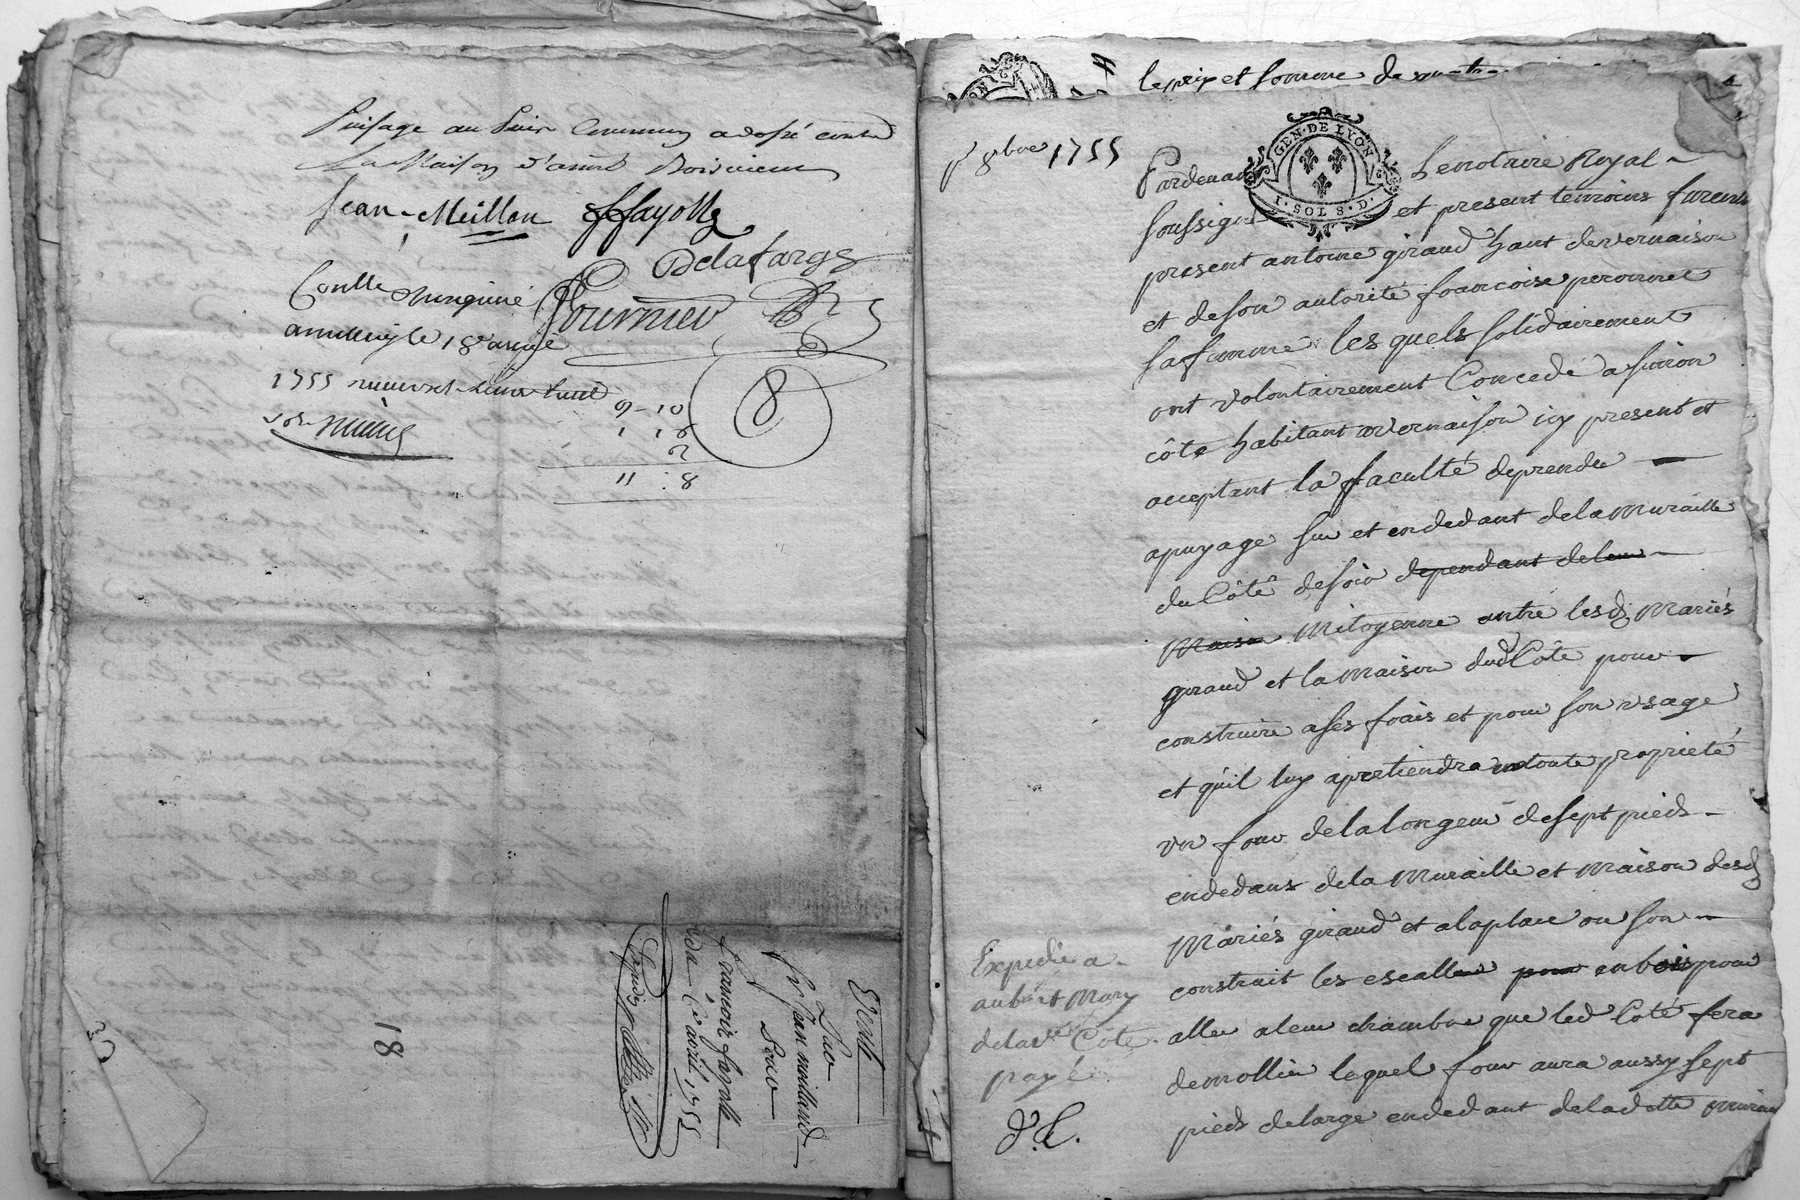 Puisage au Puis Commun adossé contre
La Maison d'aimé
Jean Meillan ffayolle
Delafarge
Conllé
Fournier
annonay le 18e avril
1755
9 - 10
1 16
2
11 : 8
8
Vente
Par
Sr Jean meilland
Pour
francois fayolle
Du 6 avril 1755
18
le prix et somme de
pr 8bre 1755
GEN·DE LYON
1·SOL 8·D·
Pardevant Le notaire Royal
soussigné et present temoins furent
present antoine giraud hant de vernaison
et de son autorité francoise peronnet
sa femme les quels solidairement
ont volontairement Concedé a simon
côte habitant a vernaison icy present et
acceptant la faculté de prendre
apuyage sur et en dedant de la Muraille
du Côté de soir dependant de leur
Maison Mitoyenne entre lesd Mariés
giraud et la maison dud Côte pour
construire a ses frais et pour son usage
et qu'il luy apartiendra en toute proprieté
un four de la longeur de sept pieds
en dedans de la Muraille et Maison desd
Mariés giraud et a la place ou son
construit les escallier pour en bois pour
aller a leur chambre que led Coté fera
demollir lequel four aura aussy sept
pieds de large en dedant de la ditte
Expedié a
aubert Mary
de la ve Côte
payé